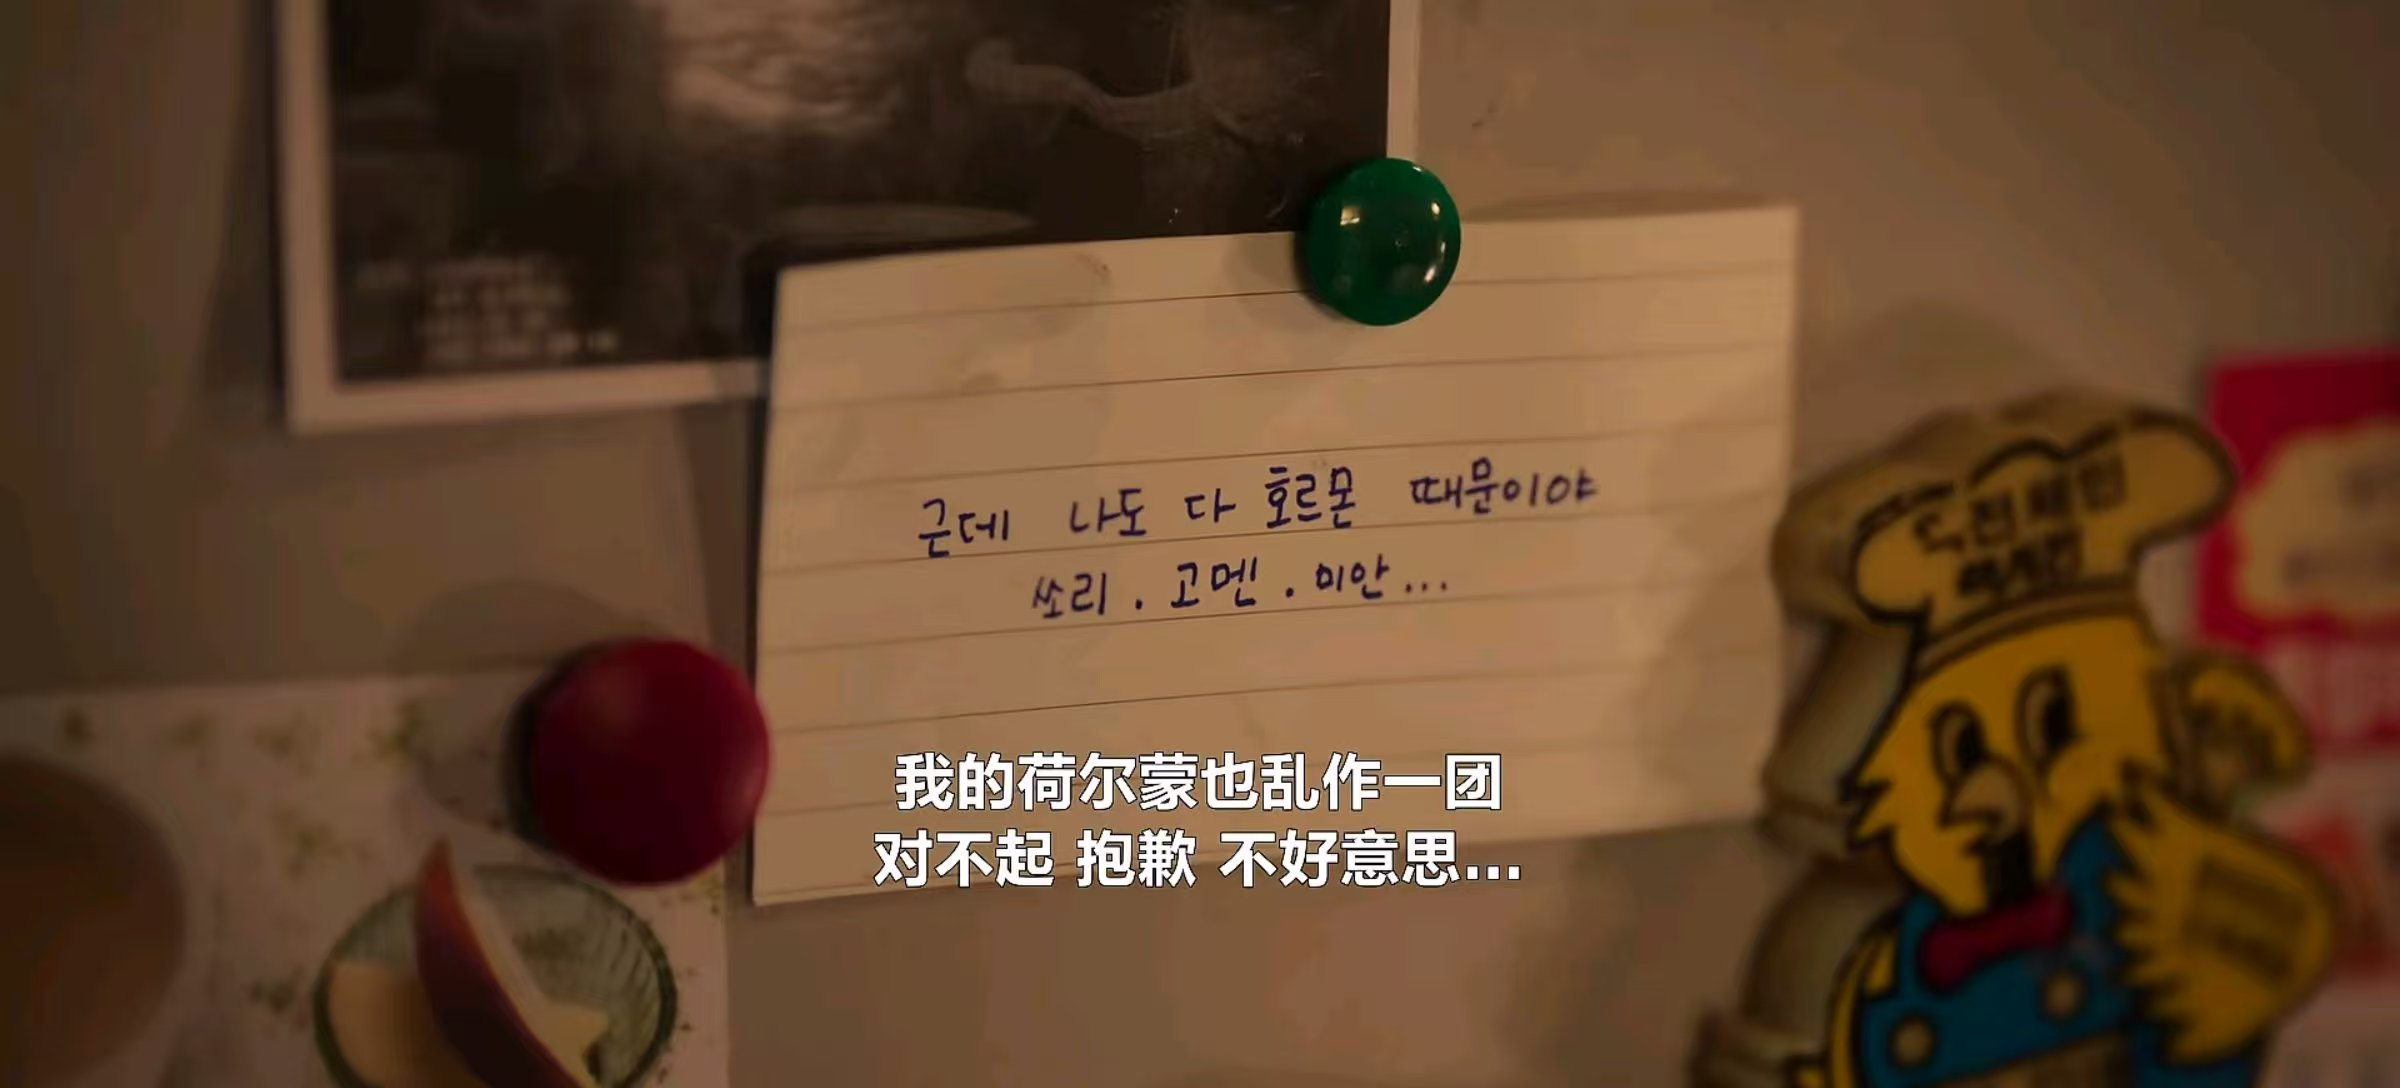 근데 나도 다 호르몬 때문이야
쏘리. 고멘. 미안...
我的荷尔蒙也乱作一团
对不起 抱歉 不好意思...